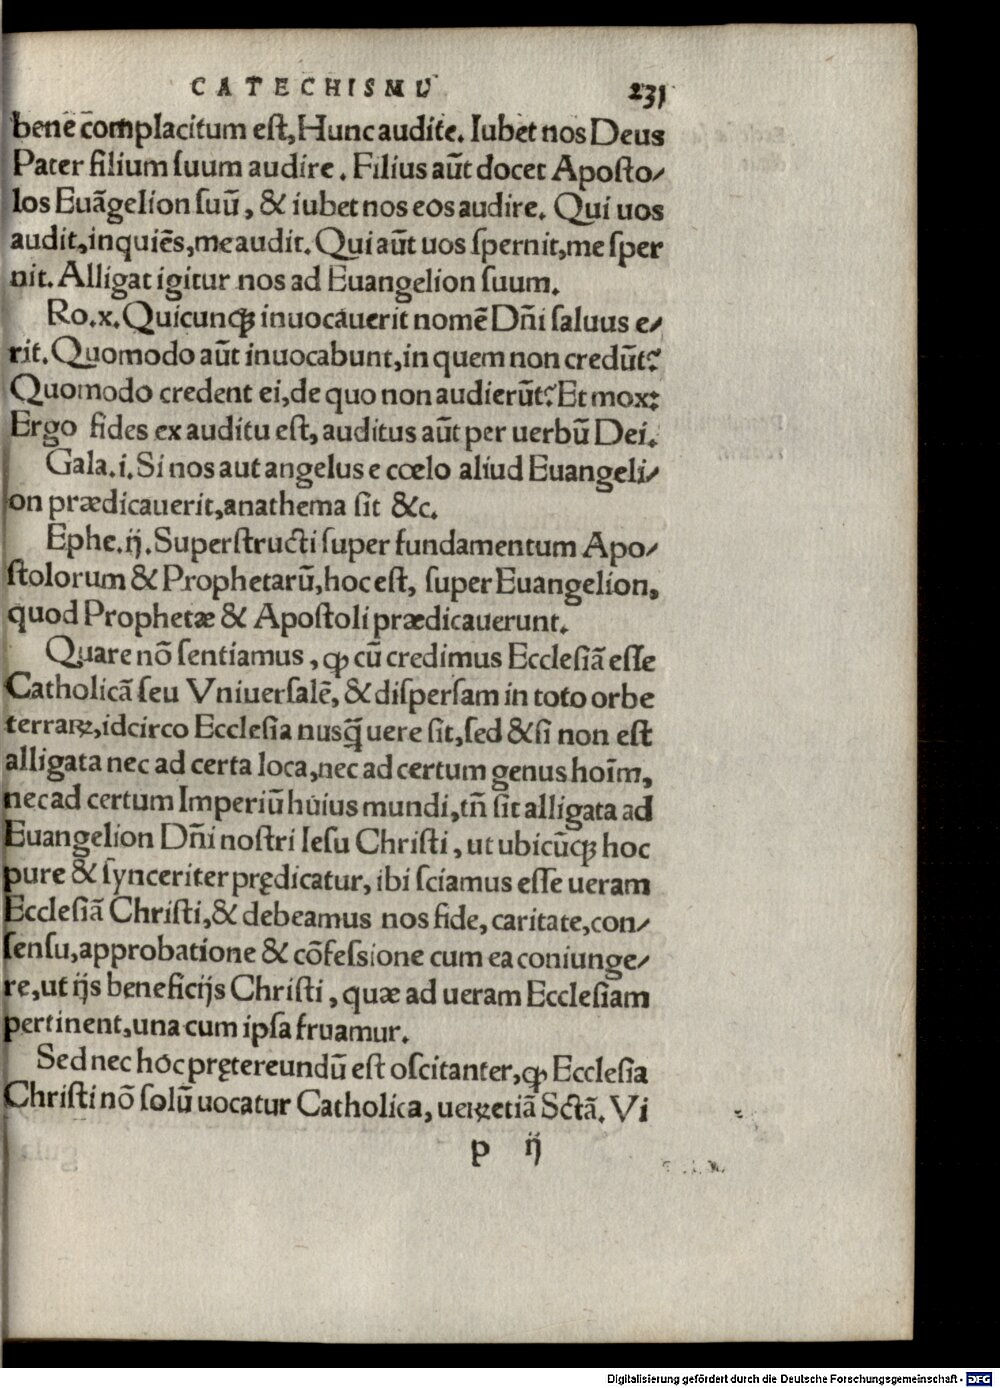 CATECHISMV̄ 231
bene cōmplacitum eſt, Hunc audite. Iubet nos Deus
Pater filium ſuum audire. Filius aūt docet Apoſto/
los Euāgelion ſuū, & iubet nos eos audire. Qui uos
audit, inquiēs, me audit. Qui aūt uos ſpernit, me ſper
nit. Alligat igitur nos ad Euangelion ſuum.
Ro.x. Quicunqꝫ inuocauerit nomē Dn̄i ſaluus e/
rit. Quomodo aūt inuocabunt, in quem non credūt?
Quomodo credent ei, de quo non audierūt? Et mox:
Ergo fides ex auditu eſt, auditus aūt per uerbū Dei.
Gala.i. Si nos aut angelus e cœlo aliud Euangeli/
on prædicauerit, anathema ſit &c.
Ephe.ij. Superſtructi ſuper fundamentum Apo/
ſtolorum & Prophetarū, hoc eſt, ſuper Euangelion,
quod Prophetæ & Apoſtoli prædicauerunt.
Quare nō ſentiamus, ꝙ cū credimus Eccleſiā eſſe
Catholicā ſeu Vniuerſalē, & diſperſam in toto orbe
terraꝝ, idcirco Eccleſia nusq̄ uere ſit, ſed & ſi non eſt
alligata nec ad certa loca, nec ad certum genus hoīm,
nec ad certum Imperiū huius mundi, tn̄ ſit alligata ad
Euangelion Dn̄i noſtri Ieſu Chriſti, ut ubicūqꝫ hoc
pure & ſynceriter prędicatur, ibi ſciamus eſſe ueram
Eccleſiā Chriſti, & debeamus nos fide, caritate, con/
ſenſu, approbatione & cōfeſsione cum ea coniunge/
re, ut ijs beneficijs Chriſti, quæ ad ueram Eccleſiam
pertinent, una cum ipſa fruamur.
Sed nec hoc prętereundū eſt oſcitanter, ꝙ Eccleſia
Chriſti nō ſolū uocatur Catholica, ueꝝ etiā Sctā. Vi
p ij
Digitalisierung gefördert durch die Deutsche Forschungsgemeinschaft - DFG